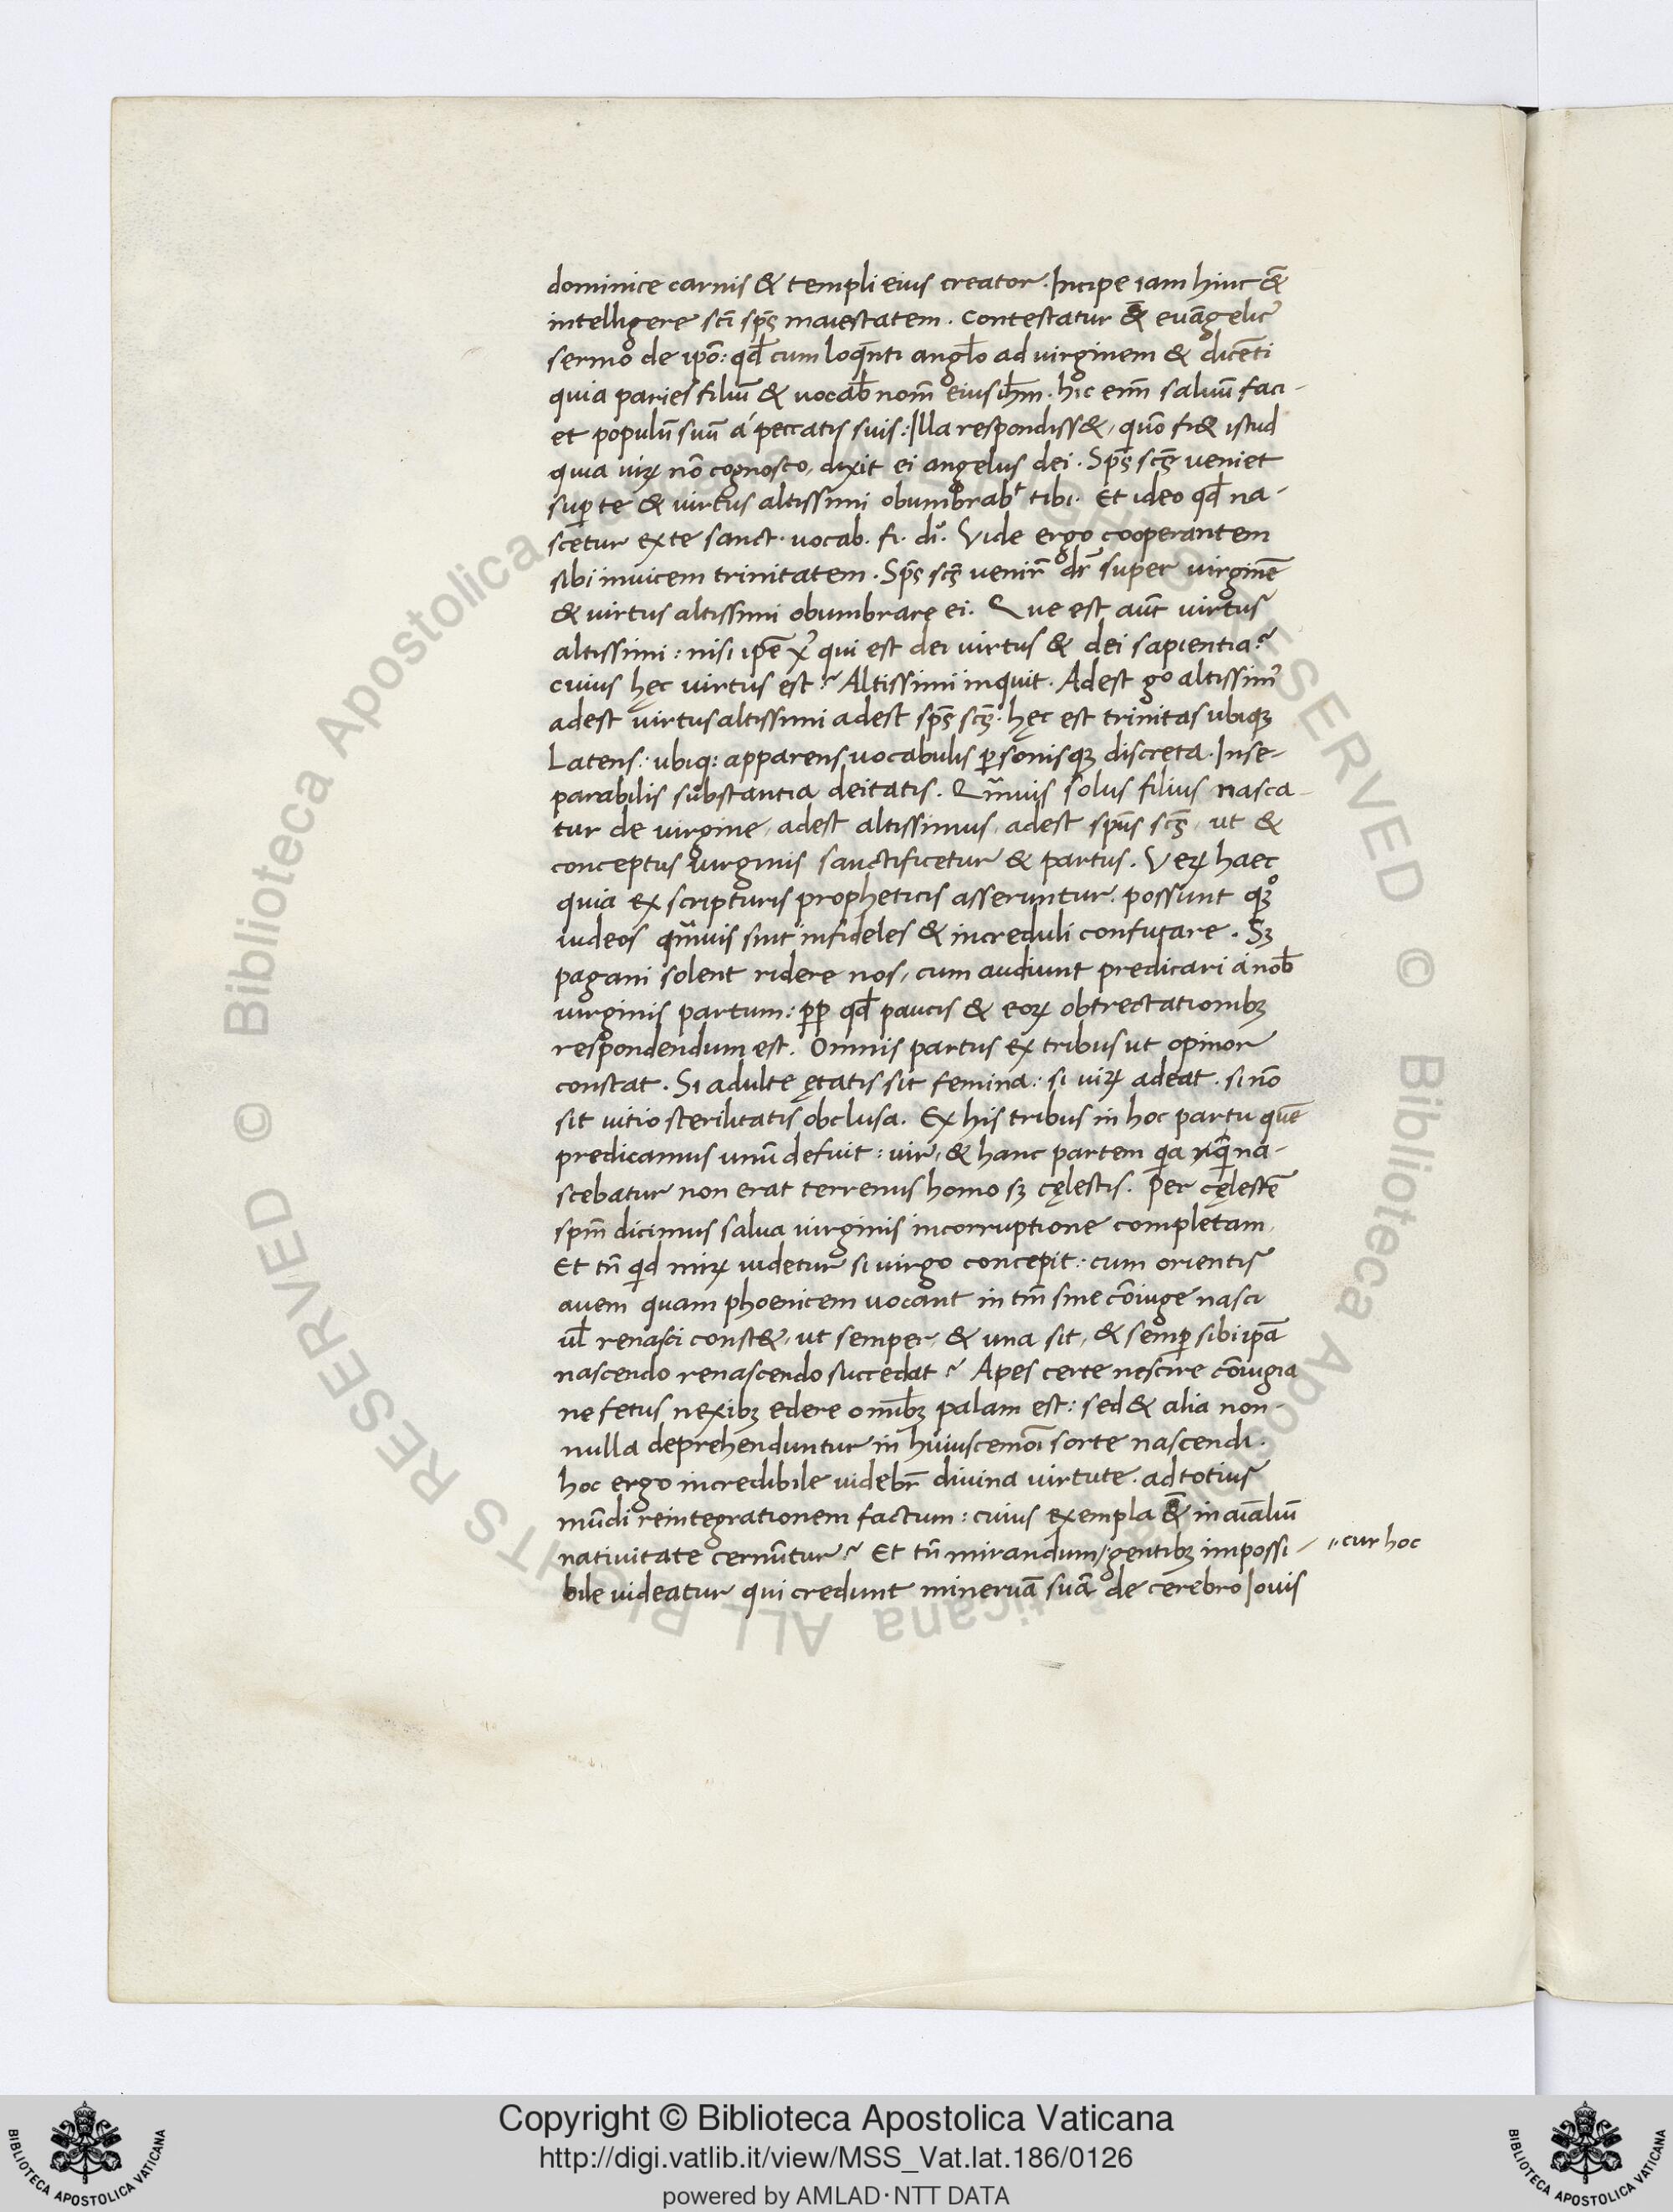 dominice carnis & templi eius creator. Incipe iam hinc &̄
intelligere sc̄i sp̄s maiestatem. Contestatur &̄ euāgelic᾿
sermo de ip̄o: qd̄ cum loq̄nti angl̄o ad virginem & dicēti
quia paries filiū & vocab̄ nom̄ eius ih̄m. hic eni᷉ saluū faci-
et populū suū á peccatis suis: Illa respondiss&, quō fi& istud
quia uiꝝ nō cognosco, dixit ei angelus dei. Sp̄s sc̄s veniet
suꝑ te & virtus altissimi obumbrabᵗ tibi. Et ideo qd̄ na-
scetur ex te sanct. vocab. fi. di᾿. Vide ergo cooperantem
sibi invicem trinitatem. Sp̄s sc̄s venir̄ dr̄ super virginē
& virtus altissimi obumbrare ei. Que est aūt virtus
altissimi: nisi ip̄e x᾿ qui est dei virtus & dei sapientia?
cuius hęc virtus est? Altissimi inquit. Adest gº altissim᾿
adest virtus altissimi adest sp̄s sc̄s. hęc est trinitas ubiqꝫ
Latens: ubiq: apparens vocabulis ꝑsonisqꝫ discreta. Inse-
parabilis substantia deitatis. Qm̄uis solus filius nasca-
tur de virgine, adest altissimus, adest sp̄us sc̄s, ut &
conceptus virginis sanctificetur & partus. Veꝝ haec
quia ex scripturis propheticis asseruntur. possunt qꝫº
iudeos qm̄uis sint infideles & increduli confutare. Sꝫ
pagani solent ridere nos, cum audiunt predicari á nob̄
virginis partum: ꝓp qd̄ paucis & eoꝝ obtrectationibꝫ
respondendum est. Omnis partus ex tribus ut opinor
constat. Si adulte ętatis sit femina: si uiꝝ adeat. si nō
sit vitio sterilitatis obclusa. Ex his tribus in hoc partu quē
predicamus unū defuit: vir, & hanc partem qa q̄ na-
scebatur non erat terrenus homo sꝫ cęlestis. Per cęlestē
spm̄ dicimus salua virginis incorruptione completam.
Et tn̄ qid miꝝ uidetur si virgo concepit: cum orientis
avem quam phoenicem vocant in tm̄ sine cōiuge nasci
ul̄ renasci const&, ut semper, & una sit, & semꝑ sibi ip̄a
nascendo renascendo succedat? Apes certe nescire cōiugia
ne fetus nexibꝫ edere omībꝫ palam est: sed & alia non-
nulla deprehenduntur in huiuscemōi sorte nascendi.
hoc ergo incredibile videbr̄ divina virtute. ad totius
mūdi reintegrationem factum: cuius exempla &̄ in aīaliū
nativitate cernūtur? Et tn̄ mirandum, gentibꝫ impossi-
,, cur hoc
bile videatur qui credunt minervā suā de cerebro Iovis
Copyright © Biblioteca Apostolica Vaticana
http://digi.vatlib.it/view/MSS_Vat.lat.186/0126
powered by AMLAD·NTT DATA